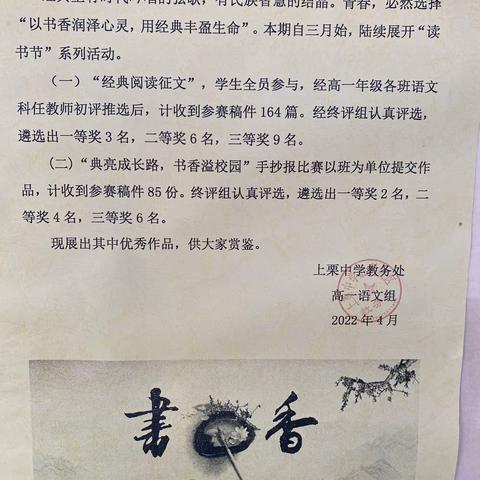 “以书香润泽心灵，用经典丰盈生命”。本期自三月始，陆续展开“读
书节”系列活动。
（一）“经典阅读征文”，学生全员参与，经高一年级各班语文
科任教师初评推选后，计收到参赛稿件 164 篇。经终评组认真评选，
遴选出一等奖 3 名，二等奖 6 名，三等奖 9 名。
（二）“典亮成长路，书香溢校园”手抄报比赛以班为单位提交作
品，计收到参赛稿件 85 份。终评组认真评选，遴选出一等奖 2 名，二
等奖 4 名，三等奖 6 名。
现展出其中优秀作品，供大家赏鉴。
上栗中学教务处
高一语文组
2022 年 4 月
書香